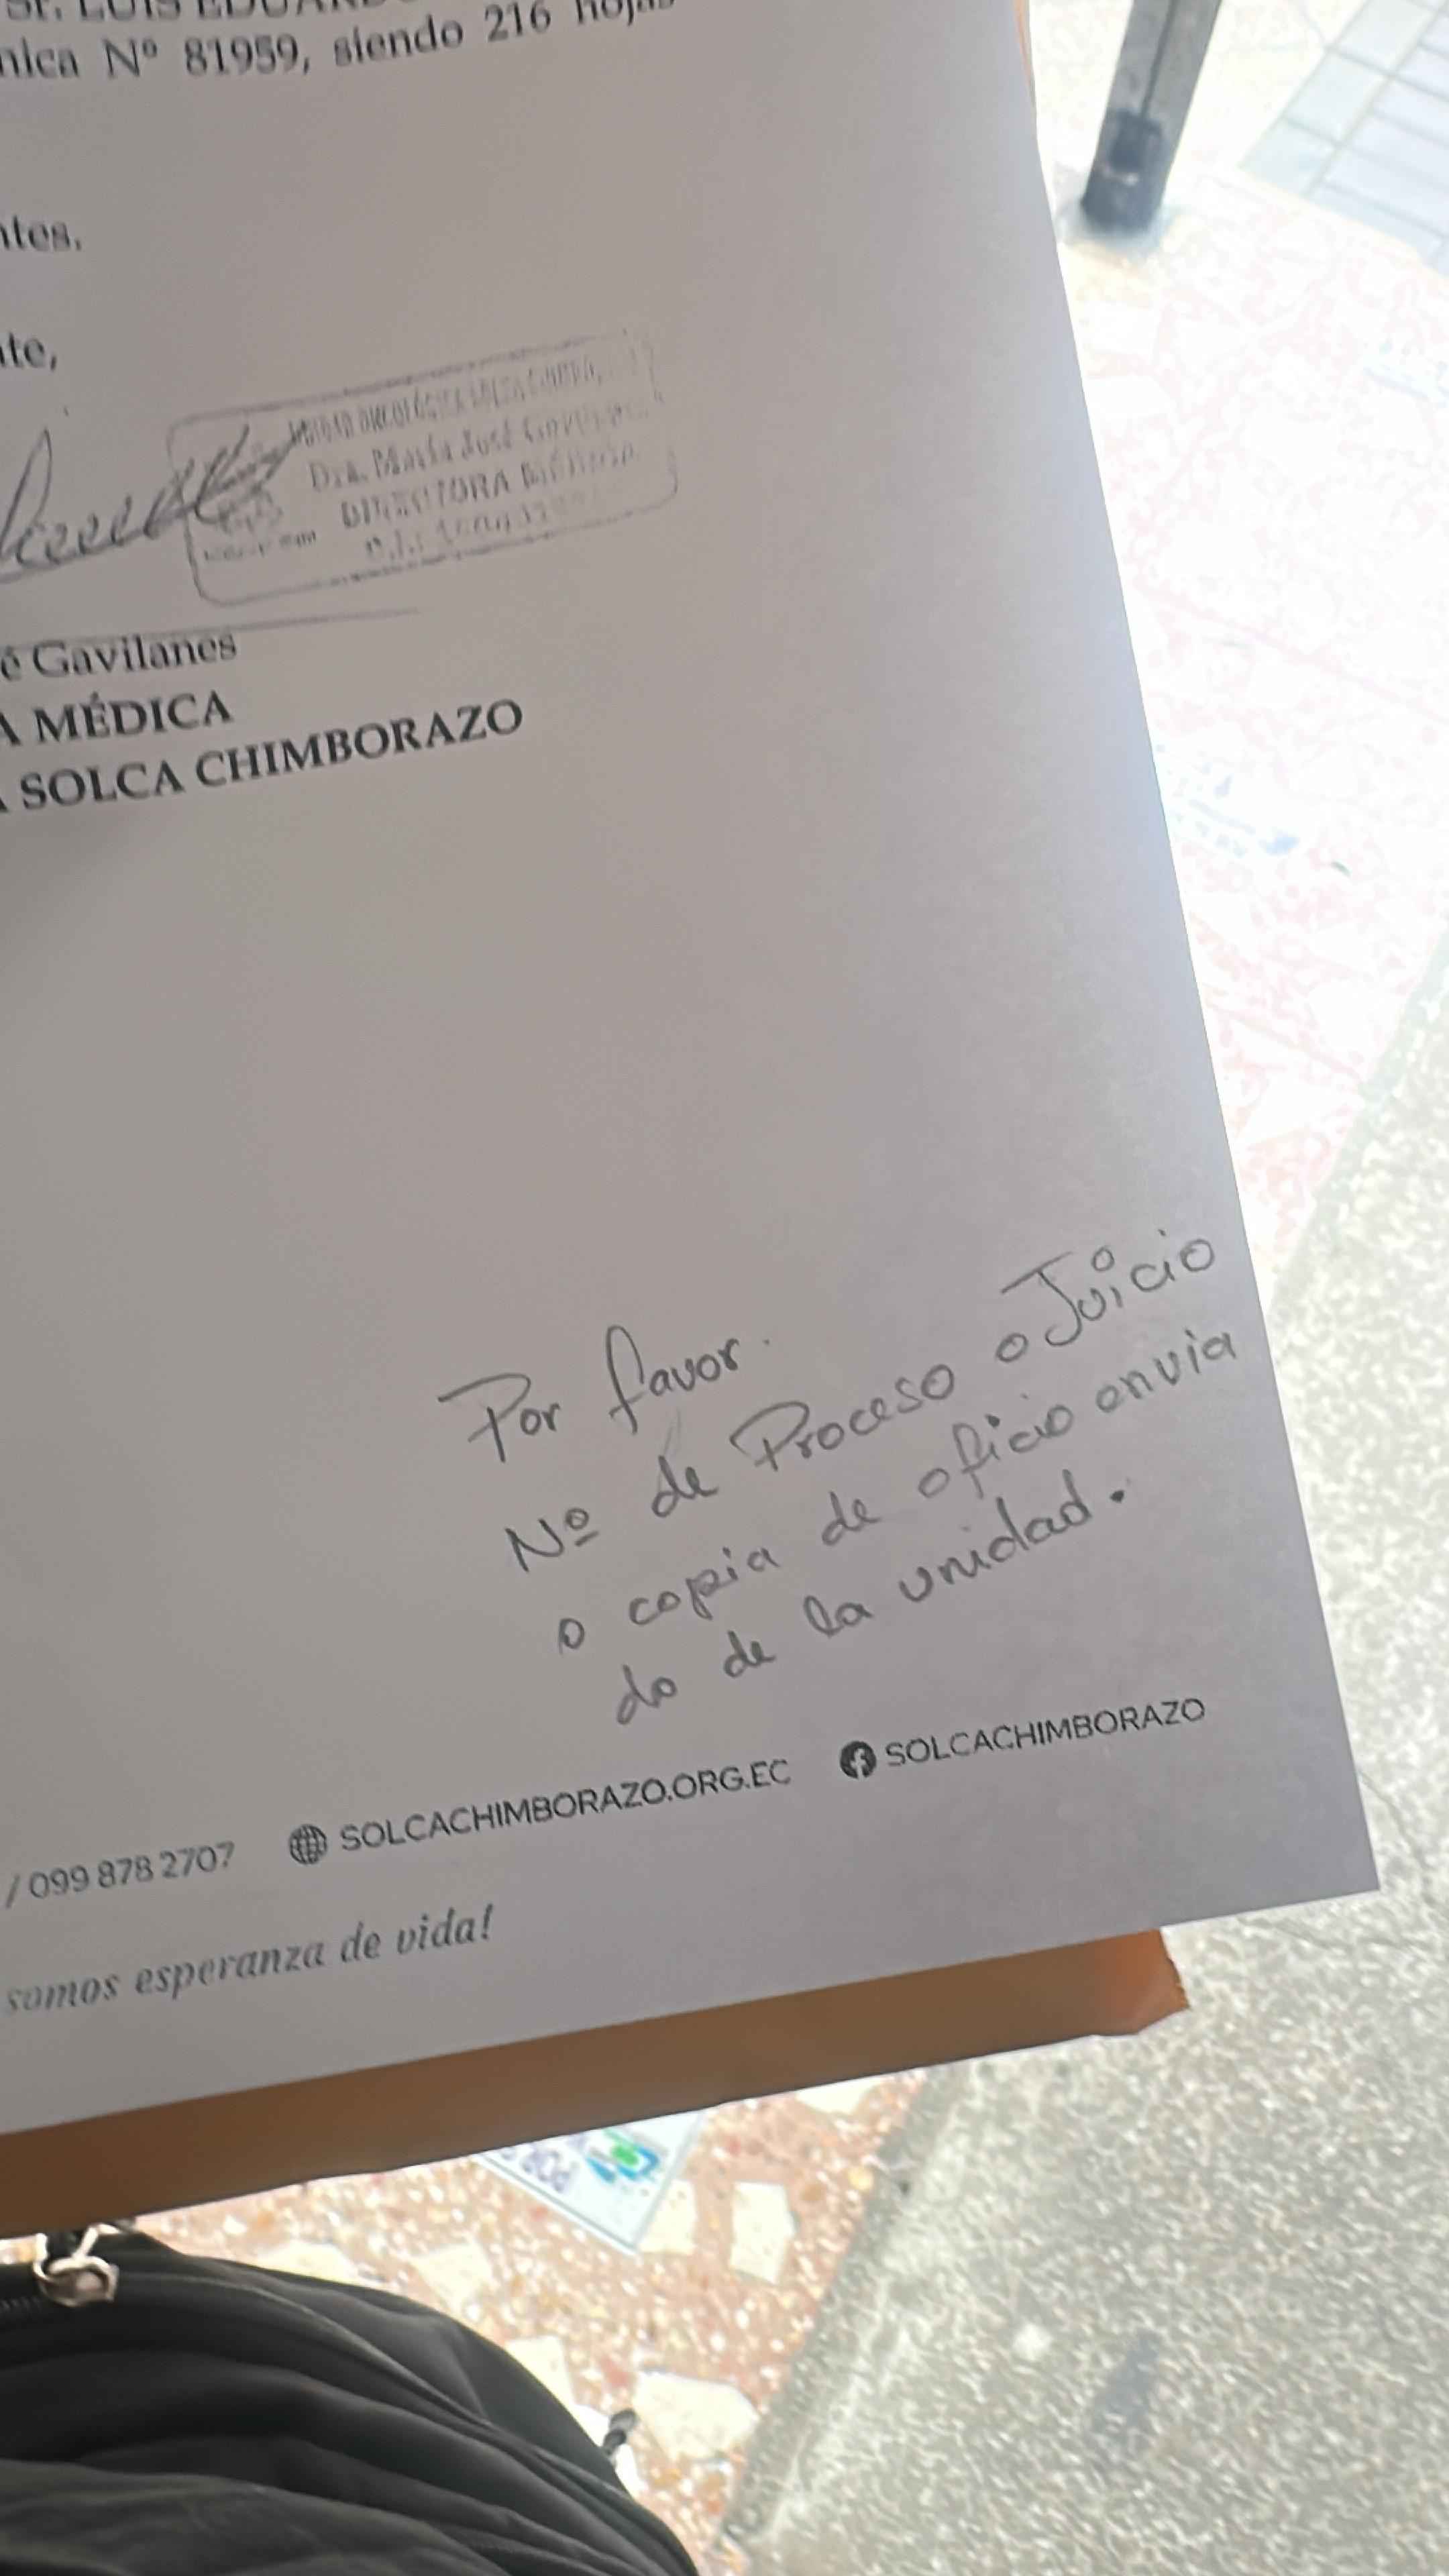 Sr. LUIS EDUARDO
nica Nº 81959, siendo 216 hojas
ntes.
te,
Dra. María José
DIRECTORA MÉDICA
é Gavilanes
A MÉDICA
A SOLCA CHIMBORAZO
Por favor.
Nº de Proceso o Juicio
o copia de oficio envia
do de la unidad.
/ 099 878 2707 SOLCACHIMBORAZO.ORG.EC SOLCACHIMBORAZO
somos esperanza de vida!